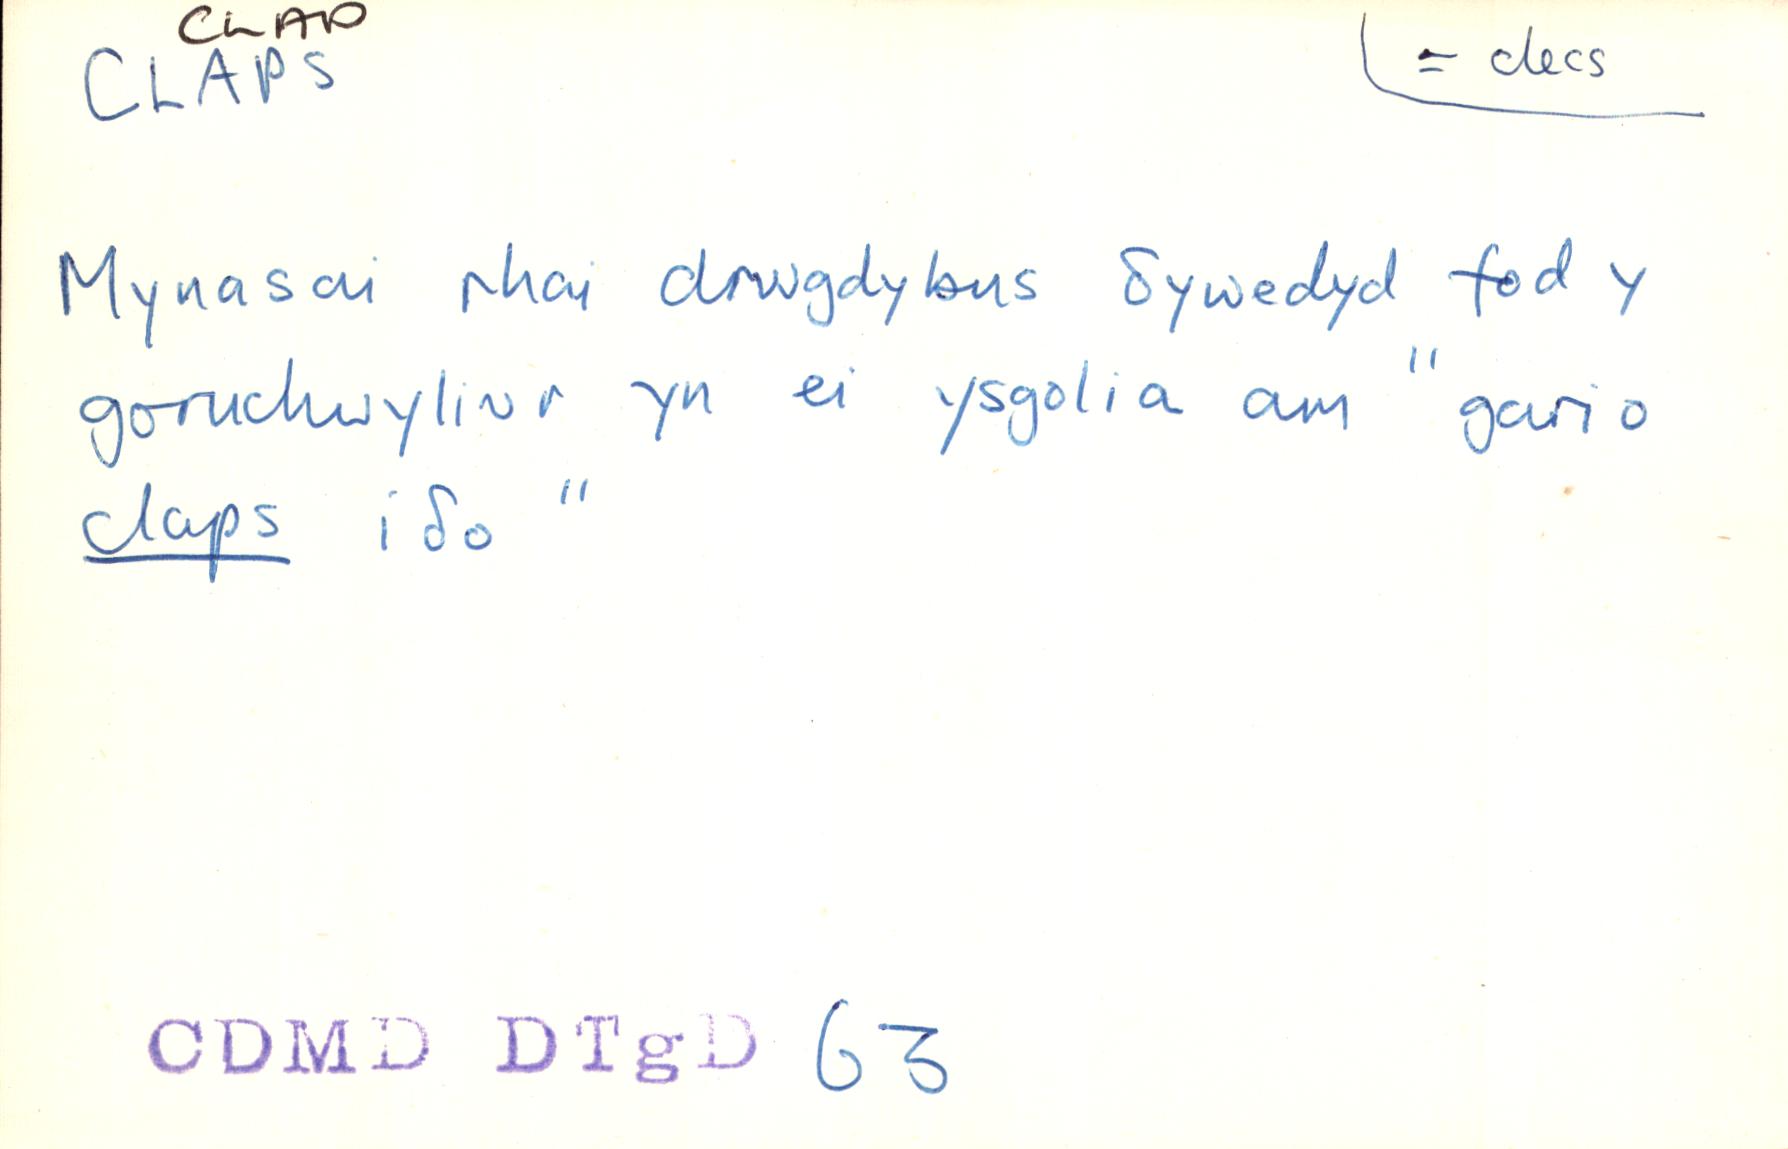 CLAP
CLAPS
= clecs
Mynasai rhai drwgdybus δywedyd fod y
goruchwyliwr yn ei ysgolia am "gario
claps iδo"
CDMD DTgD 63